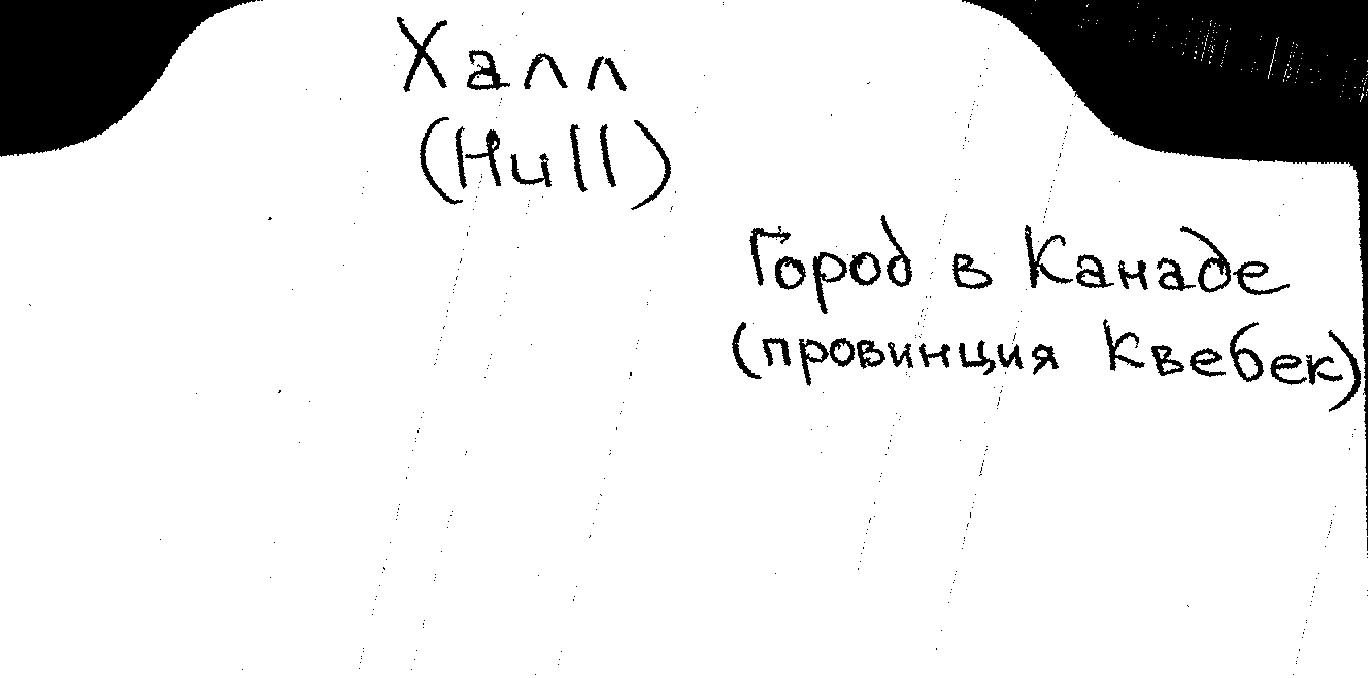 Халл
(Hull)
Город в Канаде
(провинция Квебек)